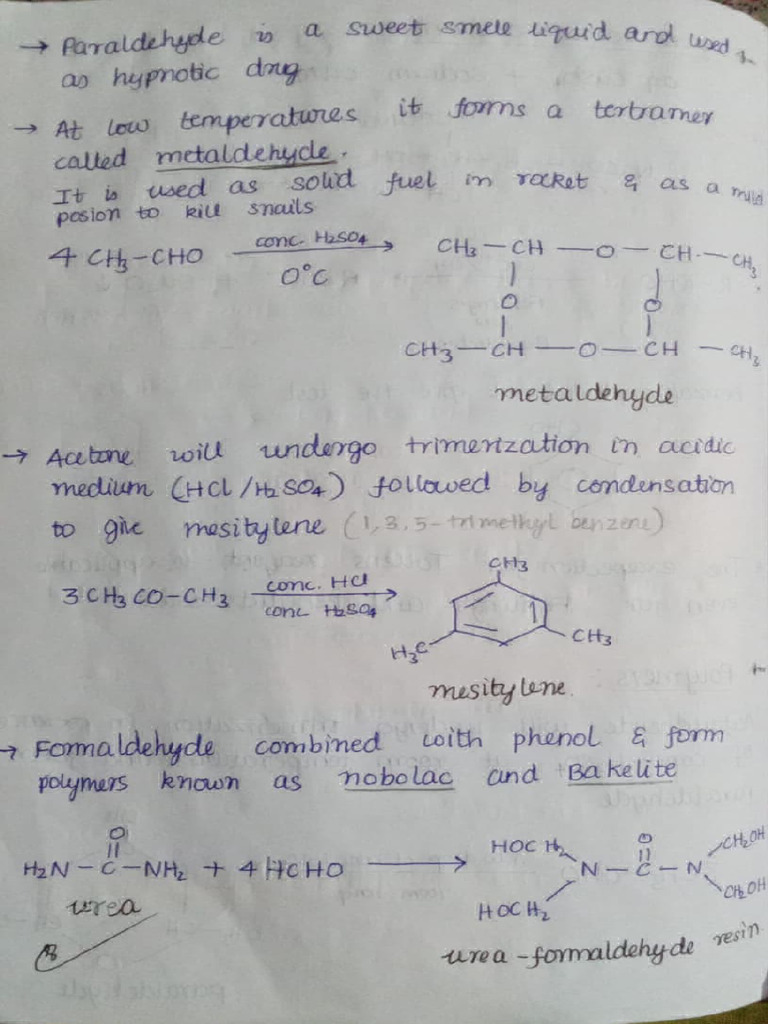 → Paraldehyde is a sweet smele liquid and used
as hypnotic drug
→ At low temperatures it forms a tertramer
called metaldehyde.
It is used as solid fuel in rocket & as a mild
posion to kill snails
4 CH3-CHO conc. H2SO4 → 0°C CH3 — CH — O — CH — CH3
O O
CH3 — CH — O — CH — CH3
metaldehyde
→ Acetone will undergo trimerization in acidic
medium (HCl/H2SO4) followed by condensation
to give mesitylene (1,3,5-trimethyl benzene)
CH3
3 CH3 CO-CH3 conc. HCl → conc H2SO4
H3C CH3
mesitylene.
→ Formaldehyde combined with phenol & form
polymers known as nobolac and Bakelite
O HOC H2 O CH2OH
H2N - C - NH2 + 4 HCHO → N - C - N
HOCH2 CH2OH
urea
urea-formaldehyde resin